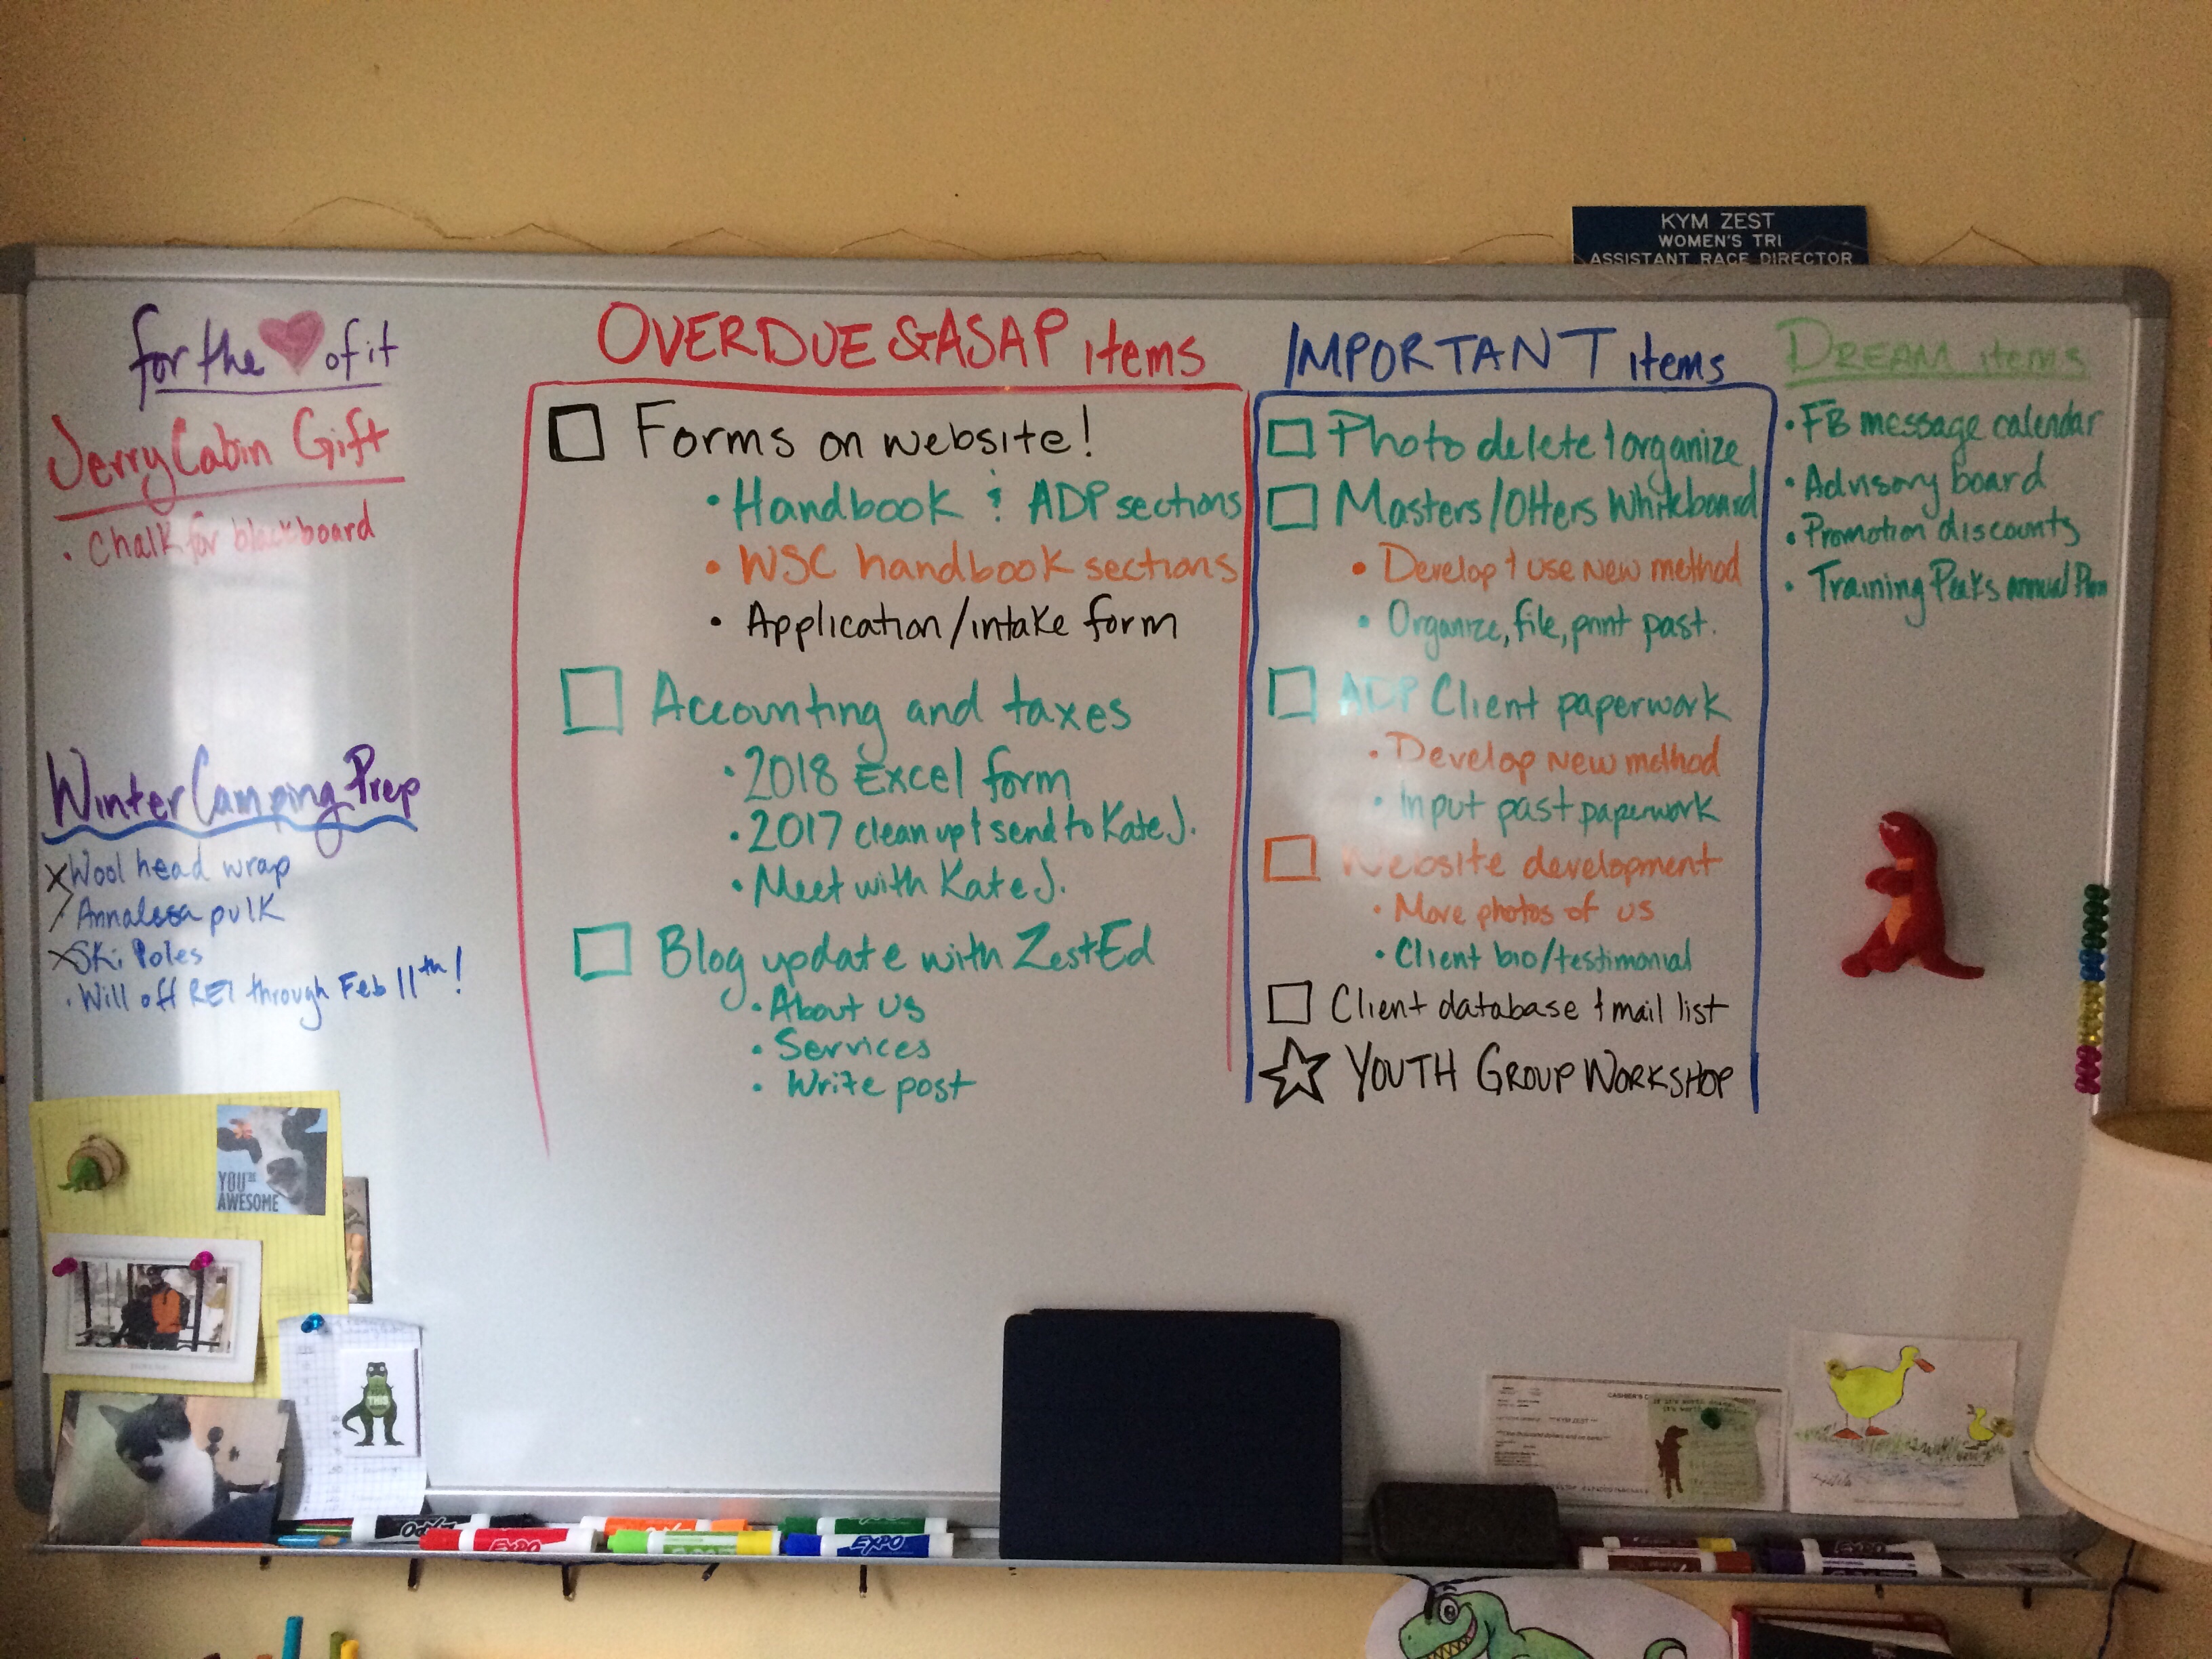 KYM ZEST
WOMEN'S TRI
ASSISTANT RACE DIRECTOR
for the ♥ of it
Jerry Cabin Gift
• Chalk for blackboard
Winter Camping Prep
Wool head wrap
Annalesa pulk
Ski Poles
• Will off REI through Feb 11th!
YOU'RE
AWESOME
THIS
OVERDUE & ASAP items
Forms on website!
• Handbook & ADP sections
• WSC handbook sections
• Application/intake form
Accounting and taxes
• 2018 Excel form
• 2017 clean up & send to Kate J.
• Meet with Kate J.
Blog update with ZestEd
• About us
• Services
• Write post
IMPORTANT items
Photo delete & organize
Masters/Otters Whiteboard
• Develop & use new method
• Organize, file, print past.
ADP Client paperwork
• Develop new method
• Input past paperwork
Website development
• More photos of us
• Client bio/testimonial
Client database & mail list
☆ YOUTH GROUP WORKSHOP
DREAM items
• FB message calendar
• Advisory board
• Promotion discounts
• Training Peaks annual Plan
CASHIER'S
KYM ZEST
EXPO
EXPO
EXPO